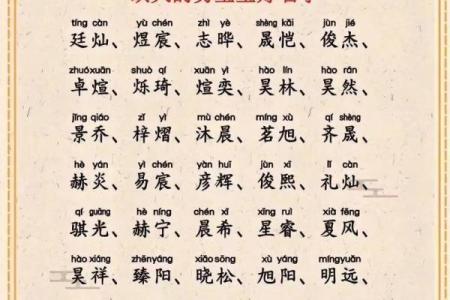 tíng càn yù chén zhì yè shèng kǎi jùn jié
廷灿、煜宸、志晔、晟恺、俊杰、
zhuóxuān shuò qí xuān yì hào lín hào rán
卓煊、烁琦、煊奕、昊林、昊然、
jǐng qiáo zǐ yì mù chén míng xù qí shèng
景乔、梓熠、沐晨、茗旭、齐晟、
hè yán yì chén yàn huī jùn xī lǐ càn
赫炎、易宸、彦辉、俊熙、礼灿、
qí guāng hè níng chén xī xīng ruì xià fēng
骐光、赫宁、晨希、星睿、夏风、
hào xiáng zhēnyáng xiǎo sōng xù yáng míngyuǎn
昊祥、臻阳、晓松、旭阳、明远、